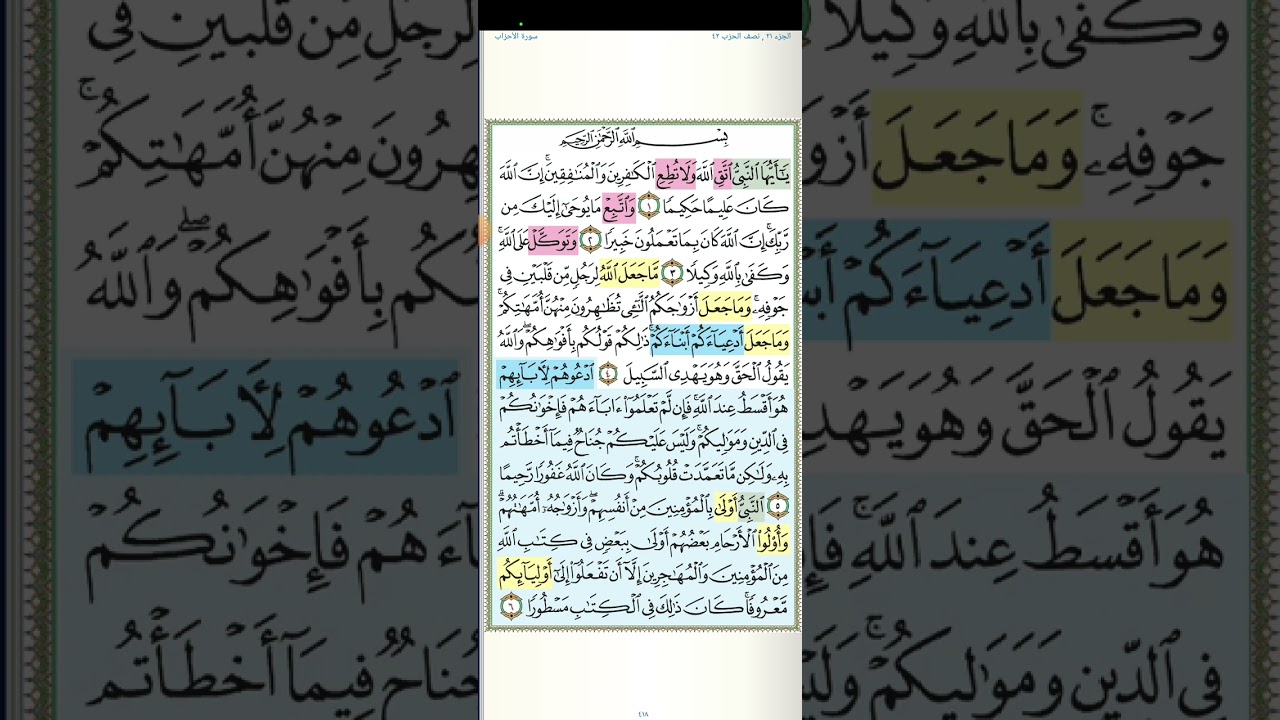 الجزء ٢١ , نصف الحزب ٤٢
سورة الأحزاب
بِسْمِ اللَّهِ الرَّحْمَٰنِ الرَّحِيمِ
يَٰٓأَيُّهَا ٱلنَّبِىُّ ٱتَّقِ ٱللَّهَ وَلَا تُطِعِ ٱلْكَٰفِرِينَ وَٱلْمُنَٰفِقِينَ ۗ إِنَّ ٱللَّهَ
كَانَ عَلِيمًا حَكِيمًا ١ وَٱتَّبِعْ مَا يُوحَىٰٓ إِلَيْكَ مِن
رَّبِّكَ ۚ إِنَّ ٱللَّهَ كَانَ بِمَا تَعْمَلُونَ خَبِيرًا ٢ وَتَوَكَّلْ عَلَى ٱللَّهِ ۚ
وَكَفَىٰ بِٱللَّهِ وَكِيلًا ٣ مَّا جَعَلَ ٱللَّهُ لِرَجُلٍ مِّن قَلْبَيْنِ فِى
جَوْفِهِۦ ۚ وَمَا جَعَلَ أَزْوَٰجَكُمُ ٱلَّٰٓـِٔى تُظَٰهِرُونَ مِنْهُنَّ أُمَّهَٰتِكُمْ ۚ
وَمَا جَعَلَ أَدْعِيَآءَكُمْ أَبْنَآءَكُمْ ۚ ذَٰلِكُمْ قَوْلُكُم بِأَفْوَٰهِكُمْ ۖ وَٱللَّهُ
يَقُولُ ٱلْحَقَّ وَهُوَ يَهْدِى ٱلسَّبِيلَ ٤ ٱدْعُوهُمْ لِءَابَآئِهِمْ
هُوَ أَقْسَطُ عِندَ ٱللَّهِ ۚ فَإِن لَّمْ تَعْلَمُوٓا۟ ءَابَآءَهُمْ فَإِخْوَٰنُكُمْ
فِى ٱلدِّينِ وَمَوَٰلِيكُمْ ۚ وَلَيْسَ عَلَيْكُمْ جُنَاحٌ فِيمَآ أَخْطَأْتُم
بِهِۦ وَلَٰكِن مَّا تَعَمَّدَتْ قُلُوبُكُمْ ۚ وَكَانَ ٱللَّهُ غَفُورًا رَّحِيمًا
٥ ٱلنَّبِىُّ أَوْلَىٰ بِٱلْمُؤْمِنِينَ مِنْ أَنفُسِهِمْ ۖ وَأَزْوَٰجُهُۥٓ أُمَّهَٰتُهُمْ ۗ
وَأُو۟لُوا۟ ٱلْأَرْحَامِ بَعْضُهُمْ أَوْلَىٰ بِبَعْضٍ فِى كِتَٰبِ ٱللَّهِ
مِنَ ٱلْمُؤْمِنِينَ وَٱلْمُهَٰجِرِينَ إِلَّآ أَن تَفْعَلُوٓا۟ إِلَىٰٓ أَوْلِيَآئِكُم
مَّعْرُوفًا ۚ كَانَ ذَٰلِكَ فِى ٱلْكِتَٰبِ مَسْطُورًا ٦
٤١٨